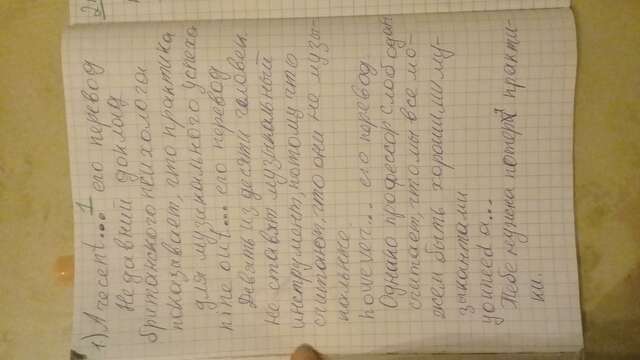 1) A recent... его перевод
Недавний доклад
британского психолога
показывает, что практика
для музыкального успеха
nine out... его перевод
Девять из десяти человек
не ставят музыкальный
инструмент, потому что
считают, что они не музы-
кальные.
however... его перевод.
Однако профессор слободан
считает, что мы все мо-
жем быть хорошими му-
зыкантами
you need a...
Тебе нужена потеря практи-
ки.